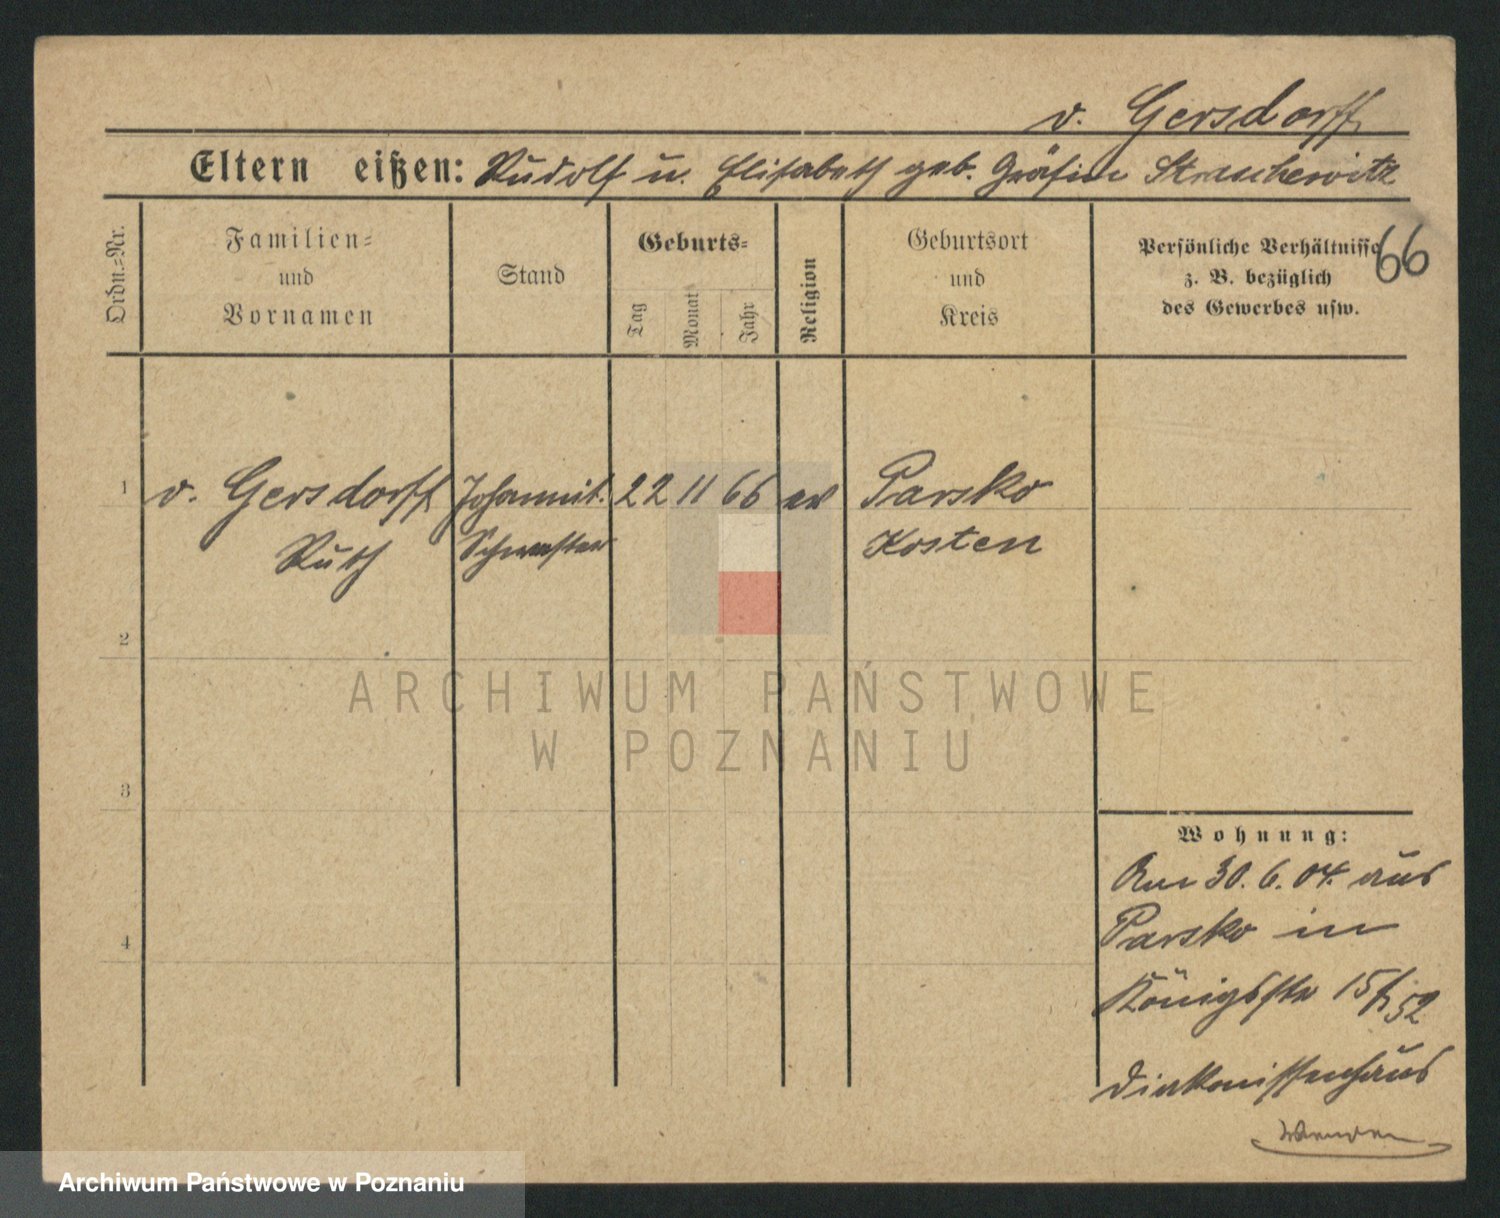 v. Gersdorff
Eltern eißen: Rudolf u. Elisabeth geb. Gräfin
66
Ordn.=Nr.
Familien=
und
Vornamen
Stand
Geburts=
Tag
Monat
Jahr
Religion
Geburtsort
und
Kreis
Persönliche Verhältnisse
z. B. bezüglich
des Gewerbes usw.
1
v. Gersdorff Johannit. 22 11 66 ev Parsko
Ruth Schwester Kosten
2
3
4
ARCHIWUM PAŃSTWOWE
W POZNANIU
Wohnung:
Am 30. 6. 04. aus
Parsko in
Königsstr 15
Diakonissenhaus
Archiwum Państwowe w Poznaniu